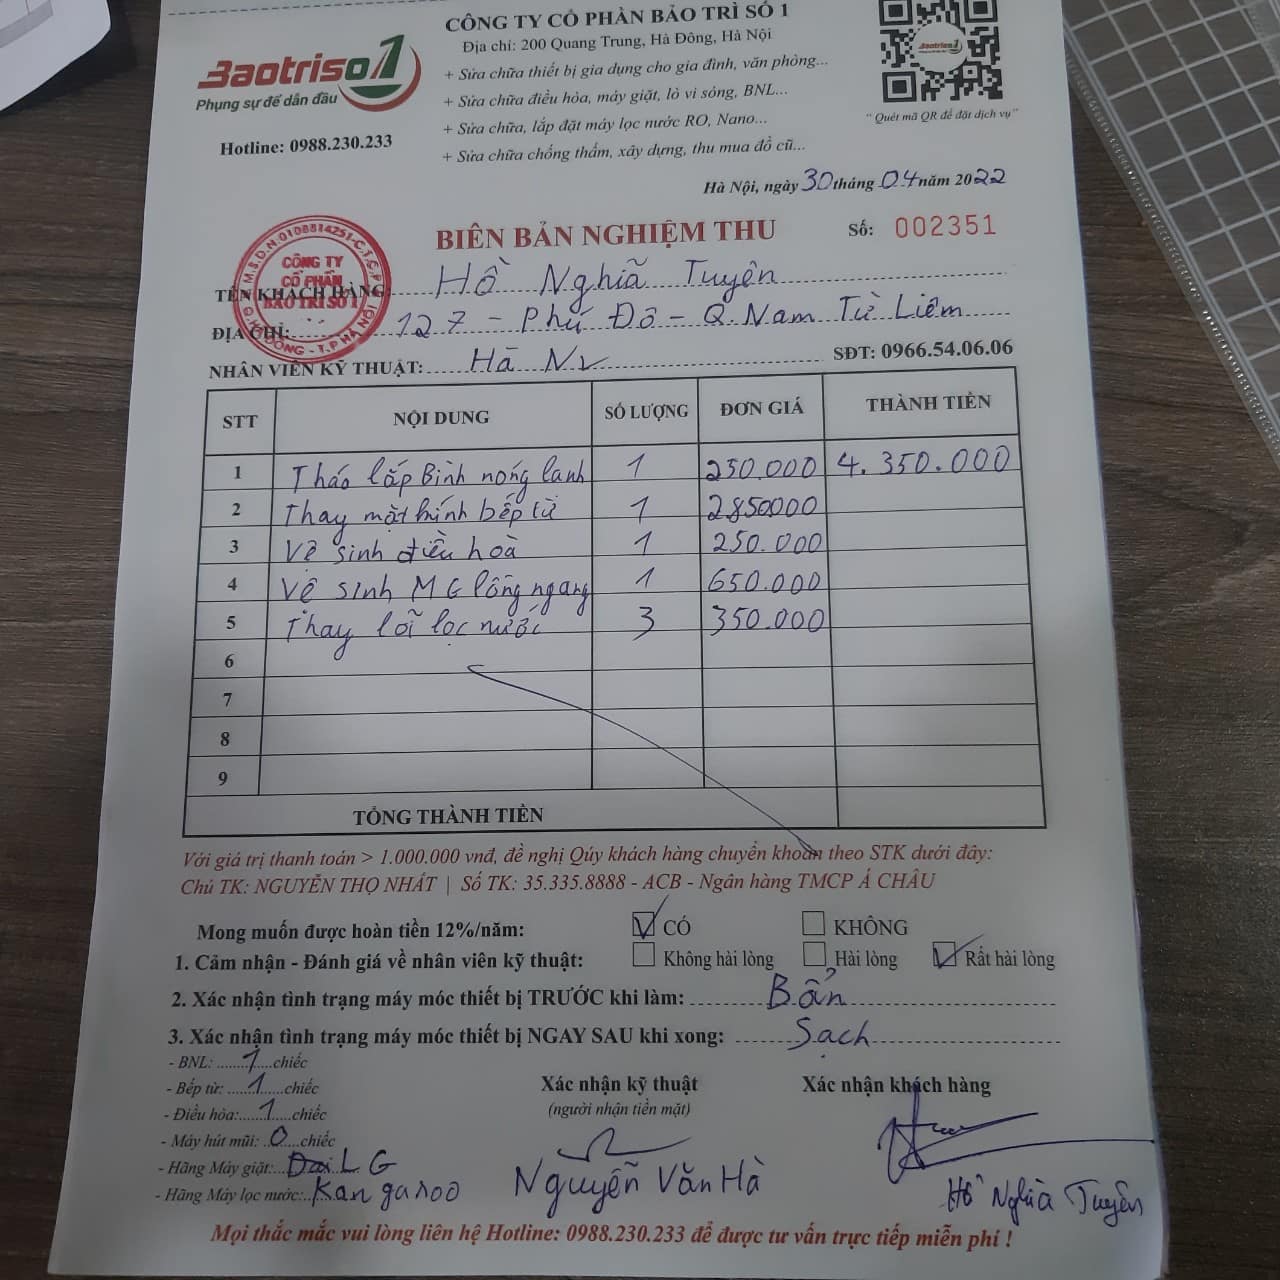 CÔNG TY CỔ PHẦN BẢO TRÌ SỐ 1
Địa chỉ: 200 Quang Trung, Hà Đông, Hà Nội
Baotriso1
Phụng sự để dẫn đầu
Hotline: 0988.230.233
+ Sửa chữa thiết bị gia dụng cho gia đình, văn phòng...
+ Sửa chữa điều hòa, máy giặt, lò vi sóng, BNL...
+ Sửa chữa, lắp đặt máy lọc nước RO, Nano...
+ Sửa chữa chống thấm, xây dựng, thu mua đồ cũ...
Baotriso1
" Quét mã QR để đặt dịch vụ"
Hà Nội, ngày 30 tháng 04 năm 2022
BIÊN BẢN NGHIỆM THU
Số: 002351
M.S.D.N 0108814251-C.T.C.P
CÔNG TY
CỔ PHẦN
BẢO TRÌ SỐ 1
Q. HÀ ĐÔNG - T.P HÀ NỘI
TÊN KHÁCH HÀNG: Hồ Nghĩa Tuyên
ĐỊA CHỈ: 127 - Phú Đô - Q. Nam Từ Liêm
NHÂN VIÊN KỸ THUẬT: Hà NV SĐT: 0966.54.06.06
STT NỘI DUNG SỐ LƯỢNG ĐƠN GIÁ THÀNH TIỀN
1 Tháo lắp Bình nóng lạnh 1 250.000 4.350.000
2 Thay mặt kính bếp từ 1 2850000
3 Vệ sinh điều hoà 1 250.000
4 Vệ sinh MG lồng ngang 1 650.000
5 Thay lõi lọc nước 3 350.000
6
7
8
9
TỔNG THÀNH TIỀN
Với giá trị thanh toán > 1.000.000 vnđ, đề nghị Qúy khách hàng chuyển khoản theo STK dưới đây:
Chủ TK: NGUYỄN THỌ NHẤT | Số TK: 35.335.8888 - ACB - Ngân hàng TMCP Á CHÂU
Mong muốn được hoàn tiền 12%/năm: CÓ KHÔNG
1. Cảm nhận - Đánh giá về nhân viên kỹ thuật: Không hài lòng Hài lòng Rất hài lòng
2. Xác nhận tình trạng máy móc thiết bị TRƯỚC khi làm: Bẩn
3. Xác nhận tình trạng máy móc thiết bị NGAY SAU khi xong: Sạch
- BNL: 1 chiếc
- Bếp từ: 1 chiếc
- Điều hòa: 1 chiếc
- Máy hút mũi: 0 chiếc
- Hãng Máy giặt: Dai LG
- Hãng Máy lọc nước: Kangaroo
Xác nhận kỹ thuật
(người nhận tiền mặt)
Nguyễn Văn Hà
Xác nhận khách hàng
Hồ Nghĩa Tuyên
Mọi thắc mắc vui lòng liên hệ Hotline: 0988.230.233 để được tư vấn trực tiếp miễn phí !